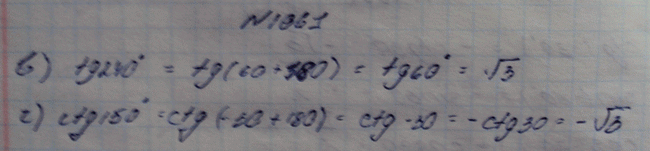 N1061
в) tg240° = tg(60+180) = tg60° = √3
г) ctg150° = ctg(-30+180) = ctg-30 = -ctg30 = -√3